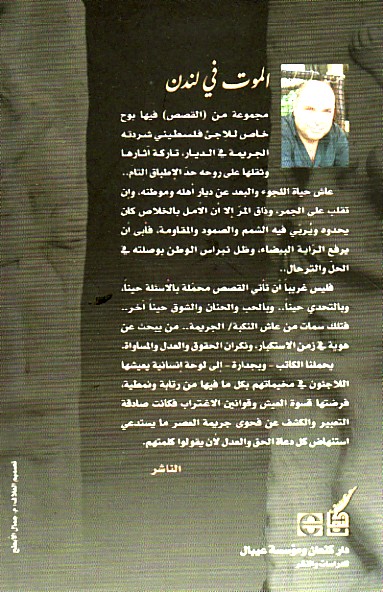 الموت في لندن
مجموعة من (القصص) فيها بوح
خاص للاجئ فلسطيني شردته
الجريمة في الديار، تاركة آثارها
وثقلها على روحه حدّ الإطباق التام..
عاش حياة اللجوء والبعد عن ديار أهله وموطنه، وإن
تقلب على الجمر، وذاق المرّ إلا أن الأمل بالخلاص كان
يحدوه ويُربّي فيه الشمم والصمود والمقاومة، فأبى أن
يرفع الرّاية البيضاء، وظل نبراس الوطن بوصلته في
الحلّ والترحال..
فليس غريباً أن تأتي القصص محمّلة بالأسئلة حيناً،
وبالتحدي حيناً.. وبالحب والحنان والشوق حيناً آخر..
فتلك سمات من عاش النكبة/ الجريمة.. من يبحث عن
هوية في زمن الاستكبار، ونكران الحقوق والعدل والمساواة.
يحملنا الكاتب – وبجدارة – إلى لوحة إنسانية يعيشها
اللاجئون في مخيماتهم بكل ما فيها من رتابة ونمطية،
فرضتها قسوة العيش وقوانين الاغتراب فكانت صادقة
التعبير والكشف عن فحوى جريمة العصر ما يستدعي
استنهاض كل دعاة الحق والعدل لأن يقولوا كلمتهم.
الناشر
دار كنعان ومؤسسة عيبال
للدراسات والنشر
تصميم الغلاف: م. جمال الأبطح